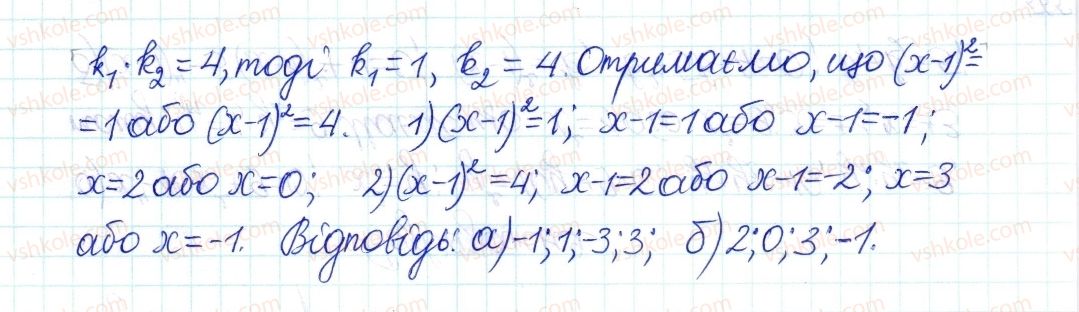 k₁·k₂=4, тоді k₁=1, k₂=4. Отримаємо, що (x-1)²=
=1 або (x-1)²=4. 1)(x-1)²=1; x-1=1 або x-1=-1;
x=2 або x=0; 2)(x-1)²=4; x-1=2 або x-1=-2; x=3
або x=-1. Відповідь: а)-1; 1; -3; 3; б)2; 0; 3; -1.